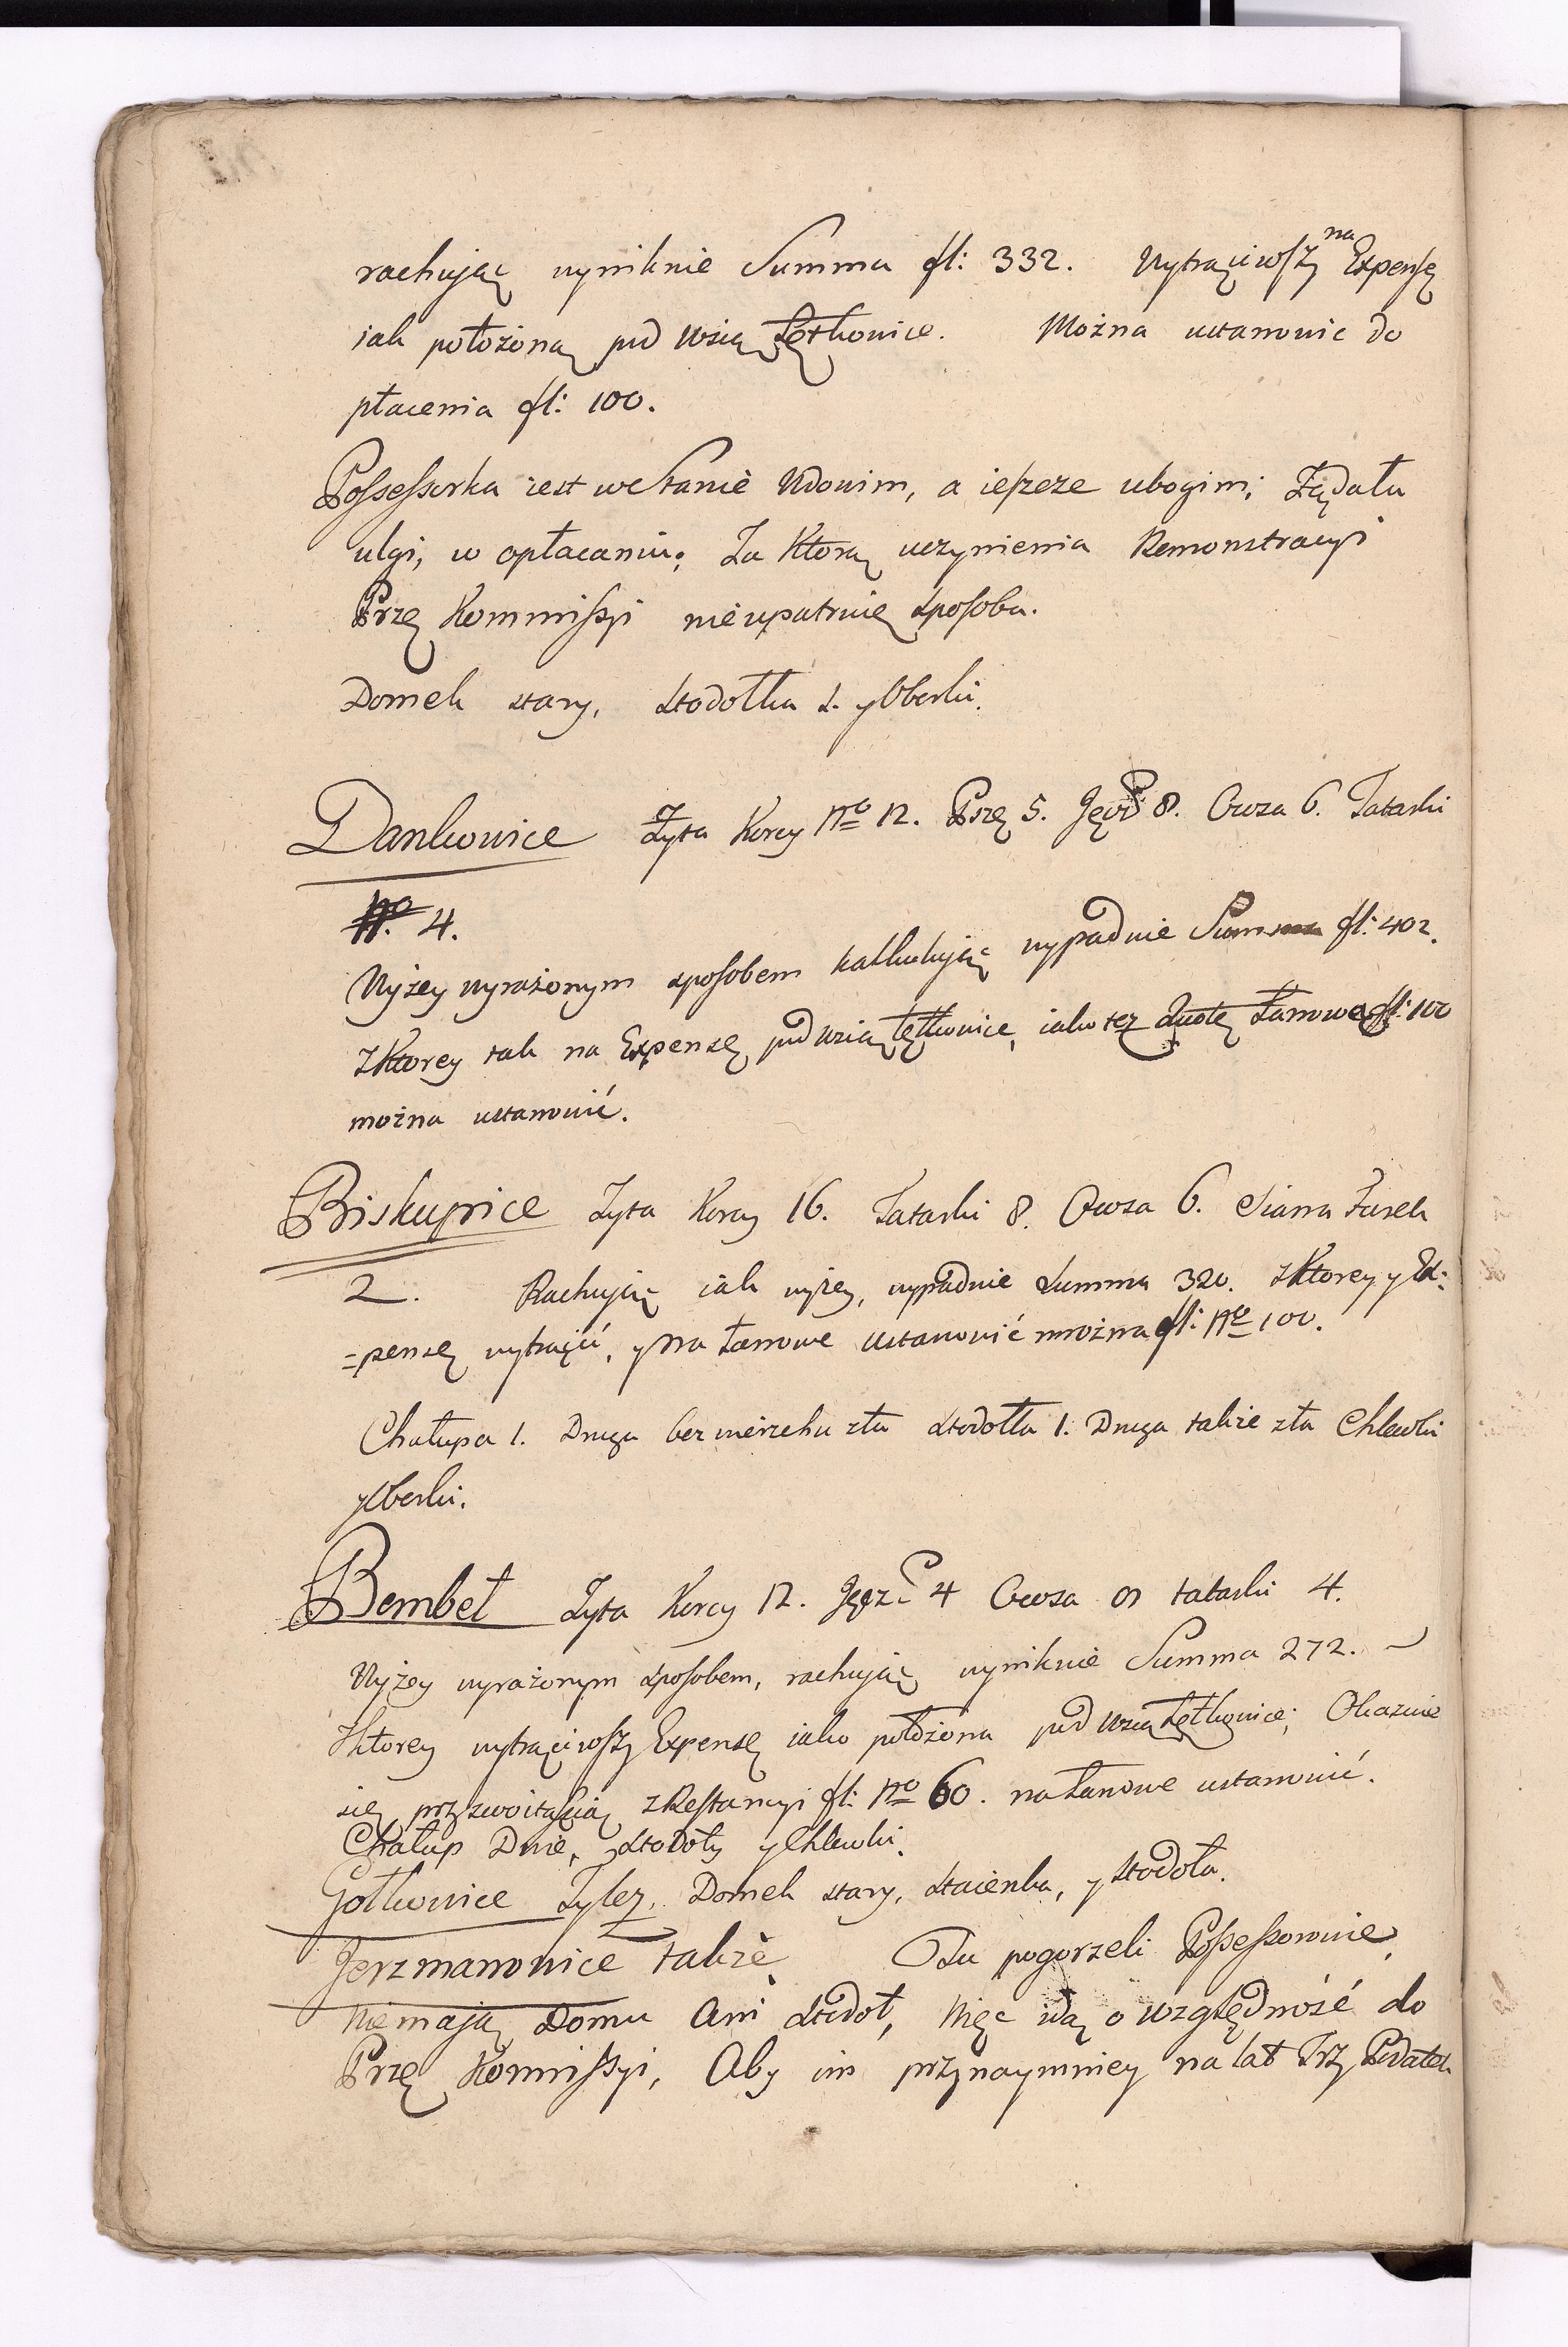 rachując wyniknie Summa fl: 332. Wytrąciwszy na Expensę
iak położoną pod wsią Łętkowice. Można ustanowić do
płacenia fl: 100.
Possessorka iest we stanie Wdowim, a ieszcze ubogim; Żądała
ulgi, w opłacaniu; Za Którą uczynienia Remonstracyi
Prze Kommissyi nie upatruię sposobu.
Domek stary, stodołka s. y Oborki.
Dankowice Żyta Korcy No 12. Psze 5. Jęcz 8. Owsa 6. Tatarki
No. 4.
Wyżey wyrażonym sposobem kalkulując wypadnie Summa fl: 402.
z Ktorey tak na Expensę pod wsią Łętkowice, iako też Quotę Łanowego fl: 100
można ustanowić.
Biskupice Żyta Korcy 16. Tatarki 8. Owsa 6. Siana Furek
2. Rachując iak wyżey, wypadnie Summa 320. z Ktorey y Ex=
=pensę wytrącić, y na Łanowe ustanowić można fl: No 100.
Chałupa 1. Druga bez wierzchu zła stodoła 1. Druga także zła Chlewki
y Oborki.
Bembeł Żyta Korcy 12. Jęcz 4 Owsa tatarki 4.
Wyżey wyrażonym sposobem, rachując wyniknie Summa 272.
z Ktorey wytrąciwszy Expensę iako położona pod wsią Łętkowice; Okazuie
się przyzwoitością z Restancyi fl: No 60. na Łanowe ustanowić.
Chałup Dwie, stodoły y Chlewki.
Gołkowice Tylez, Domek stary, staienka, y stodoła.
Jerzmanowice także Tu pogorzeli Possessorowie,
Nie mają Domu Ani stodoł, Więc idą o względność do
Prze Kommissyi, Aby im przynaymniey na lat Trzy Podatek